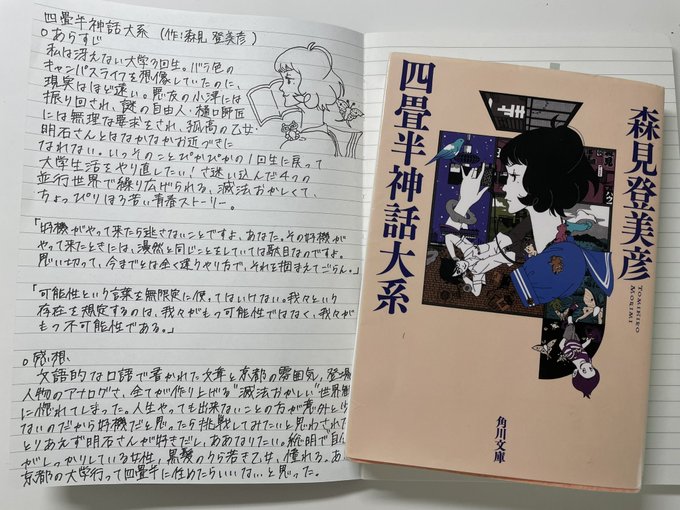 四畳半神話大系 (作:森見 登美彦)
○あらすじ
私は冴えない大学3回生。バラ色の
キャンパスライフを想像していたのに、
現実はほど遠い。悪友の小津には
振り回され、謎の自由人・樋口師匠
には無理な要求をされ、孤高の乙女・
明石さんとはなかなかお近づきに
なれない。いっそのことぴかぴかの1回生に戻って
大学生活をやり直したい!さ迷い込んだ4つの
並行世界で繰り広げられる、滅法おかしくて、
ちょっぴりほろ苦い青春ストーリー。
「好機がやって来たら逃さないことですよ、あなた。その好機が
やって来たときには、漫然と同じことをしていては駄目なのですよ。
思い切って、今までとは全く違うやり方で、それを掴まえてごらん。」
「可能性という言葉を無限定に使ってはいけない。我々という
存在を規定するのは、我々がもつ可能性ではなく、我々が
もつ不可能性である。」
○感想
文語的な口語で書かれた文章と京都の雰囲気、登場
人物のアナログさ、全てが作り上げる"滅法おかしい"世界観
に惚れてしまった。人生やっても出来ないことの方が意外と少
ないのだから好機だと思ったら挑戦してみたいと思わされた
とりあえず明石さんが好きだし、ああなりたい。聡明で自
がしっかりしている女性、黒髪のうら若き乙女、憧れる。あ
京都の大学行って四畳半に住めたらいいなぁと思った。
四畳半神話大系
森見登美彦
TOMIHIKO
MORIMI
角川文庫